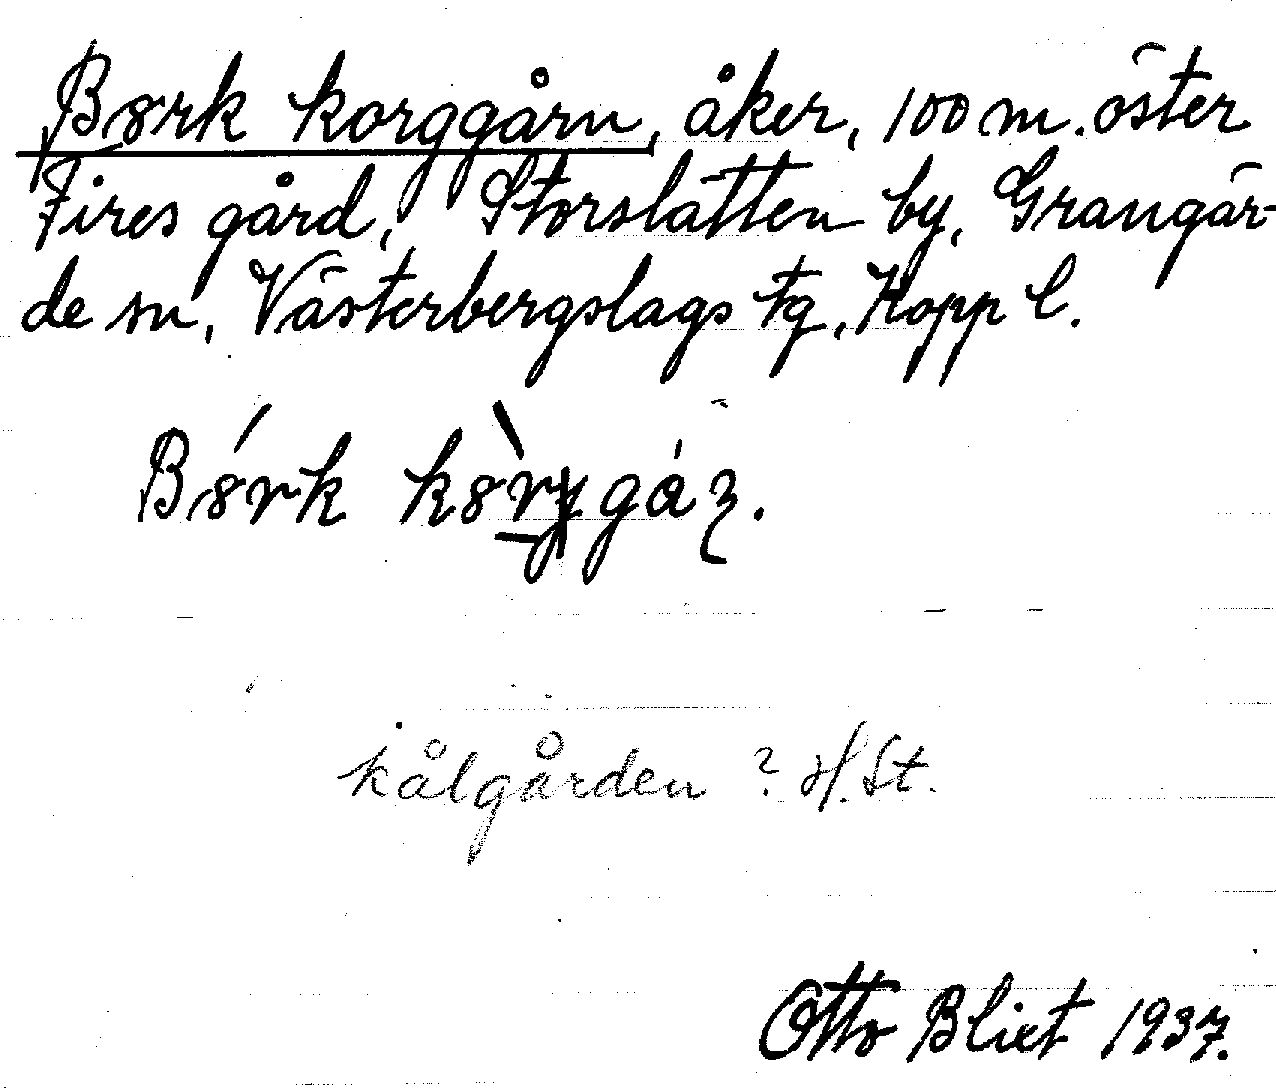 Børk korggårn, åker, 100 m. öster
Fires gård, Storslätten by, Grangär-
de sn, Västerbergslags tg, Kopp l.
kålgården ? H. St.
Otto Blixt 1937.